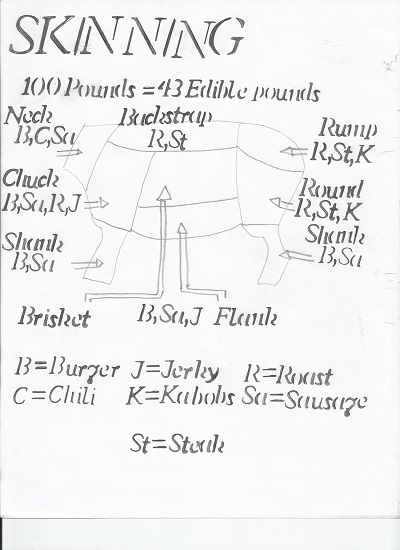 SKINNING
100 Pounds = 43 Edible pounds
Neck
B,C,Sa
Backstrap
R,St
Rump
R,St,K
Chuck
B,Sa,R,J
Round
R,St,K
Shank
B,Sa
Shank
B,Sa
Brisket B,Sa,J Flank
B=Burger J=Jerky R=Roast
C=Chili K=Kabobs Sa=Sausage
St=Steak